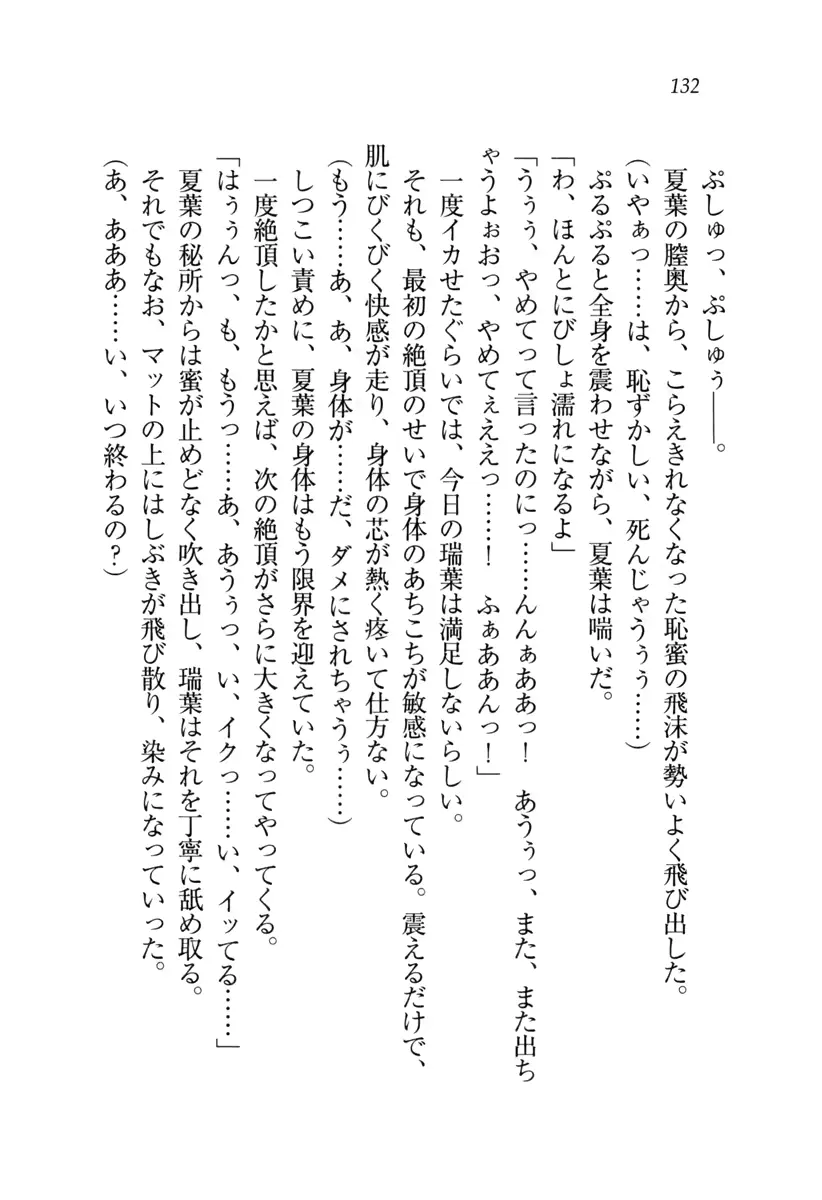 132
ぷしゅっ、ぷしゅぅ――。
夏葉の膣奥から、こらえきれなくなった恥蜜の飛沫が勢いよく飛び出した。
(いやぁっ……は、恥ずかしい、死んじゃうぅぅ……)
ぷるぷると全身を震わせながら、夏葉は喘いだ。
「わ、ほんとにびしょ濡れになるよ」
「うぅぅ、やめてって言ったのにっ……んんぁああっ! あうぅっ、また、また出ち
ゃうよぉおっ、やめてぇええっ……! ふぁああんっ!」
一度イカせたぐらいでは、今日の瑞葉は満足しないらしい。
それも、最初の絶頂のせいで身体のあちこちが敏感になっている。震えるだけで、
肌にびくびく快感が走り、身体の芯が熱く疼いて仕方ない。
(もう……あ、あ、身体が……だ、ダメにされちゃうぅ……)
しつこい責めに、夏葉の身体はもう限界を迎えていた。
一度絶頂したかと思えば、次の絶頂がさらに大きくなってやってくる。
「はぅぅんっ、も、もうっ……あ、あうぅっ、い、イクっ……い、イッてる……」
夏葉の秘所からは蜜が止めどなく吹き出し、瑞葉はそれを丁寧に舐め取る。
それでもなお、マットの上にはしぶきが飛び散り、染みになっていった。
(あ、あああ……い、いつ終わるの?)